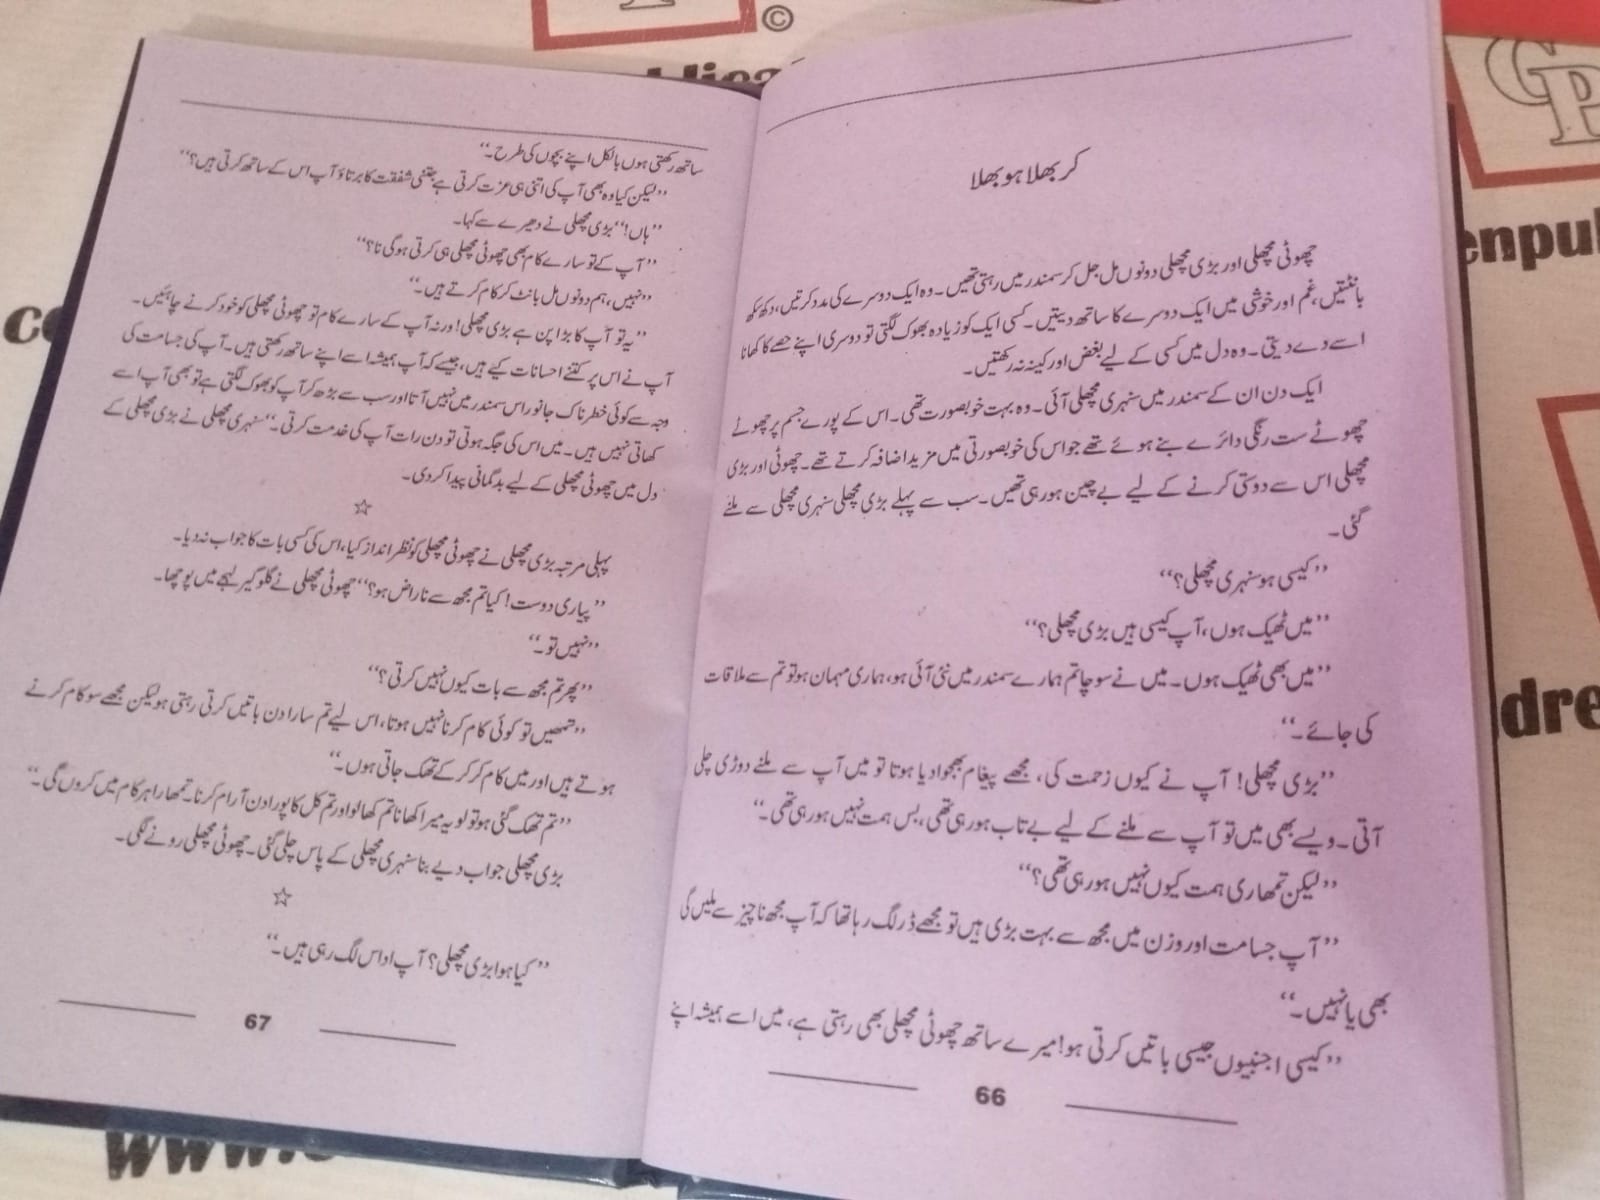 کر بھلا ہو بھلا
چھوٹی مچھلی اور بڑی مچھلی دونوں مل جل کر سمندر میں رہتی تھیں۔ وہ ایک دوسرے کی مدد کرتیں، دکھ سکھ
بانٹتیں، غم اور خوشی میں ایک دوسرے کا ساتھ دیتیں۔ کسی ایک کو زیادہ بھوک لگتی تو دوسری اپنے حصے کا کھانا
اسے دے دیتی۔ وہ دل میں کسی کے لیے بغض اور کینہ نہ رکھتیں۔
ایک دن ان کے سمندر میں سنہری مچھلی آئی۔ وہ بہت خوبصورت تھی۔ اس کے پورے جسم پر چھوٹے
چھوٹے ست رنگی دائرے بنے ہوئے تھے جو اس کی خوبصورتی میں مزید اضافہ کرتے تھے۔ چھوٹی اور بڑی
مچھلی اس سے دوستی کرنے کے لیے بے چین ہو رہی تھیں۔ سب سے پہلے بڑی مچھلی سنہری مچھلی سے ملنے
گئی۔
”کیسی ہو سنہری مچھلی؟“
”میں ٹھیک ہوں، آپ کیسی ہیں بڑی مچھلی؟“
”میں بھی ٹھیک ہوں۔ میں نے سوچا تم ہمارے سمندر میں نئی آئی ہو، ہماری مہمان ہو تو تم سے ملاقات
کی جائے۔“
”بڑی مچھلی! آپ نے کیوں زحمت کی، مجھے پیغام بھجوا دیا ہوتا تو میں آپ سے ملنے دوڑی چلی
آتی۔ ویسے بھی میں تو آپ سے ملنے کے لیے بے تاب ہو رہی تھی، بس ہمت نہیں ہو رہی تھی۔“
”لیکن تمھاری ہمت کیوں نہیں ہو رہی تھی؟“
”آپ جسامت اور وزن میں مجھ سے بہت بڑی ہیں تو مجھے ڈر لگ رہا تھا کہ آپ مجھ ناچیز سے ملیں گی
بھی یا نہیں۔“
”کیسی اجنبیوں جیسی باتیں کرتی ہو! میرے ساتھ چھوٹی مچھلی بھی رہتی ہے، میں اسے ہمیشہ اپنے
66
ساتھ رکھتی ہوں بالکل اپنے بچوں کی طرح۔“
”لیکن کیا وہ بھی آپ کی اتنی ہی عزت کرتی ہے جتنی شفقت کا برتاؤ آپ اس کے ساتھ کرتی ہیں؟“
”ہاں!“ بڑی مچھلی نے دھیرے سے کہا۔
”آپ کے تو سارے کام بھی چھوٹی مچھلی ہی کرتی ہو گی نا؟“
”نہیں، ہم دونوں مل بانٹ کر کام کرتے ہیں۔“
”یہ تو آپ کا بڑا پن ہے بڑی مچھلی! ورنہ آپ کے سارے کام تو چھوٹی مچھلی کو خود کرنے چاہئیں۔
آپ نے اس پر کتنے احسانات کیے ہیں، جیسے کہ آپ ہمیشہ اسے اپنے ساتھ رکھتی ہیں۔ آپ کی جسامت کی
وجہ سے کوئی خطرناک جانور اس سمندر میں نہیں آتا اور سب سے بڑھ کر آپ کو بھوک لگتی ہے تو بھی آپ اسے
کھاتی نہیں ہیں۔ میں اس کی جگہ ہوتی تو دن رات آپ کی خدمت کرتی۔“ سنہری مچھلی نے بڑی مچھلی کے
دل میں چھوٹی مچھلی کے لیے بدگمانی پیدا کر دی۔
☆
پہلی مرتبہ بڑی مچھلی نے چھوٹی مچھلی کو نظر انداز کیا، اس کی کسی بات کا جواب نہ دیا۔
”پیاری دوست! کیا تم مجھ سے ناراض ہو؟“ چھوٹی مچھلی نے گلوگیر لہجے میں پوچھا۔
”نہیں تو۔“
”پھر تم مجھ سے بات کیوں نہیں کرتی؟“
”تمھیں تو کوئی کام کرنا نہیں ہوتا، اس لیے تم سارا دن باتیں کرتی رہتی ہو لیکن مجھے سو کام کرنے
ہوتے ہیں اور میں کام کر کر کے تھک جاتی ہوں۔“
”تم تھک گئی ہو تو لو یہ میرا کھانا تم کھا لو اور تم کل کا پورا دن آرام کرنا۔ تمھارا ہر کام میں کروں گی۔“
بڑی مچھلی جواب دیے بنا سنہری مچھلی کے پاس چلی گئی۔ چھوٹی مچھلی رونے لگی۔
☆
”کیا ہوا بڑی مچھلی؟ آپ اداس لگ رہی ہیں۔“
67